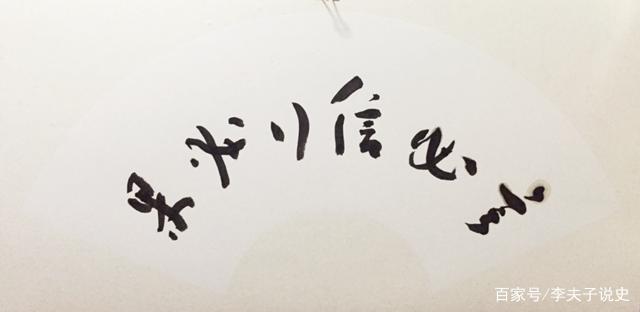 言必信行必果
百家号/李夫子说史